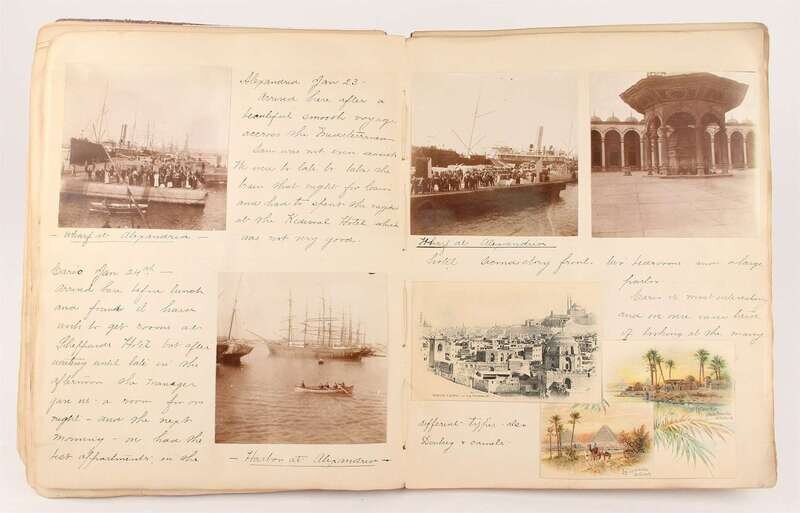 Alexandria Jan 23 -
Arrived here after a
beautiful smooth voyage
accross the Mediterranean
Sam was not even seasick
We were to late to take the
train that night for Cairo
and had to spent the night
at the Kedivial Hotel which
was not very good.
- Wharf at Alexandria -
Cairo Jan 24th -
Arrived here before lunch
and found it hard
work to get rooms at
Shepheards Hotel but after
waiting until late in the
afternoon the manager
gave us a room for one
night - and the next
morning - we had the
best appartments in the
- Harbor at Alexandria -
Wharf at Alexandria
hotel front. two bedrooms and a large
parlor
Cairo is most interesting
and one never tires
of looking at the many
different types - also
Donkey & camels -